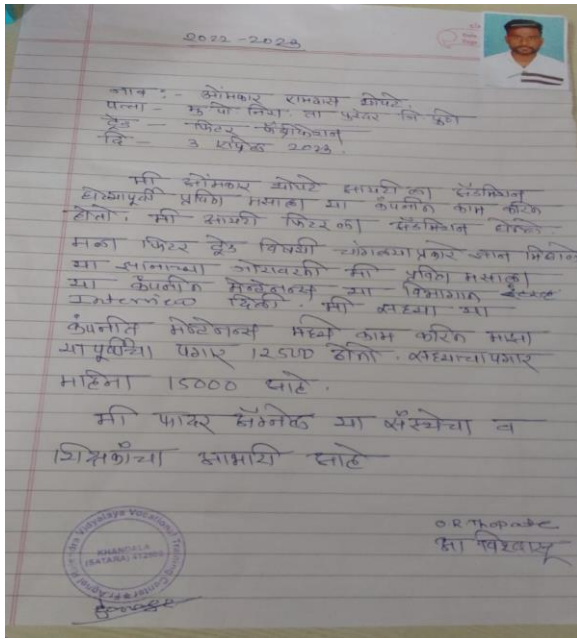 2022-2023
नाव :- ओंमकार रामदास थोपटे.
पत्ता - मु. पो निरा. ता पुरंदर जि पुणे
ट्रेड - फिटर फॅब्रीकेशन
दि - 3 एप्रिल 2023.
मी ओंमकार थोपटे आयटी ला ॲडमिशन
घेण्यापूर्वी प्रविण मसाला या कंपनीत काम करित
होतो. मी आयटी फिटर ला ॲडमिशन घेतले
मला फिटर ट्रेड विषयी चांगल्या प्रकारे ज्ञान मिळाले
या ज्ञानाच्या जोरावरती मी प्रविण मसाला
या कंपनीत मेन्टेनन्स या विभागात
Interview दिली. मी सध्या या
कंपनीत मेन्टेनन्स मध्ये काम करित माझा
या पूर्वीचा पगार 12500 होतो. सध्याचा पगार
महिना 15000 आहे.
मी फादर ॲग्नेल या संस्थेचा व
शिक्षकांचा आभारि आहे
ORThopate
आ विश्वासू
Vidyalaya Vocational Training Center
KHANDALA
(SATARA) 412802